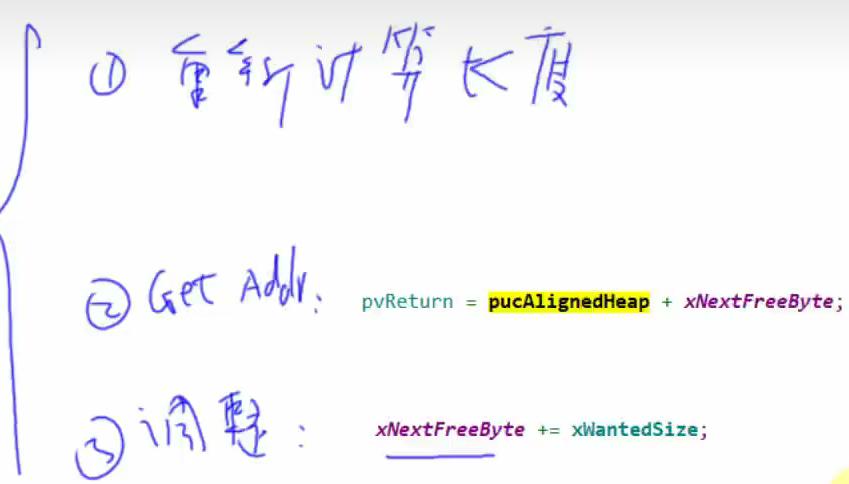 ① 重新计算长度
② Get Addr: pvReturn = pucAlignedHeap + xNextFreeByte;
③ 调整: xNextFreeByte += xWantedSize;